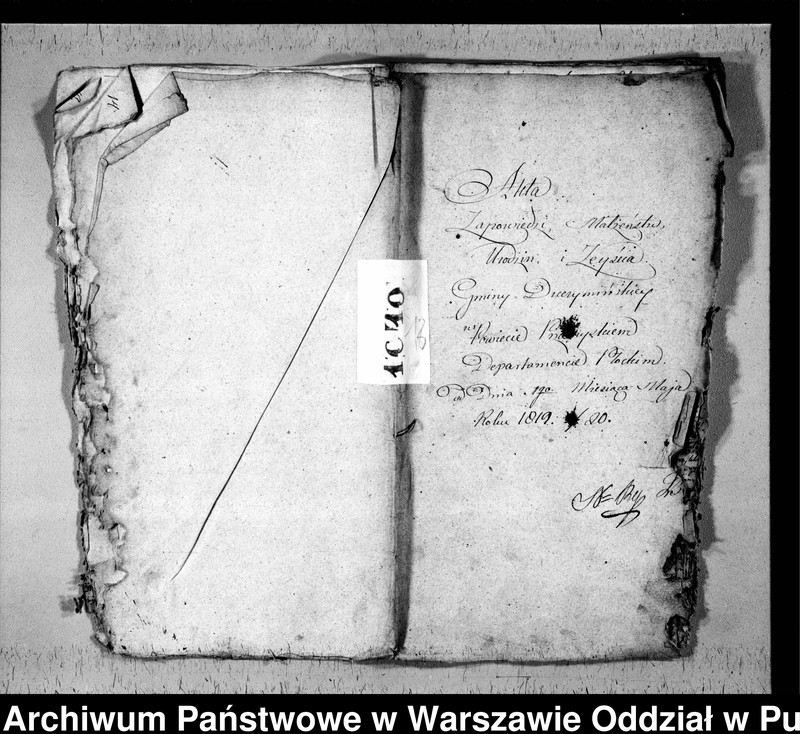 Akta
Zapowiedzi, Małzeństw,
Urodzin, i Zeyścia
Gminy Duczymińskiey
w Powiecie Przasnyskiem
Departamencie Płockim.
od Dnia 1go Miesiąca Maja
Roku 1819. / 20.
Archiwum Państwowe w Warszawie Oddział w Pu